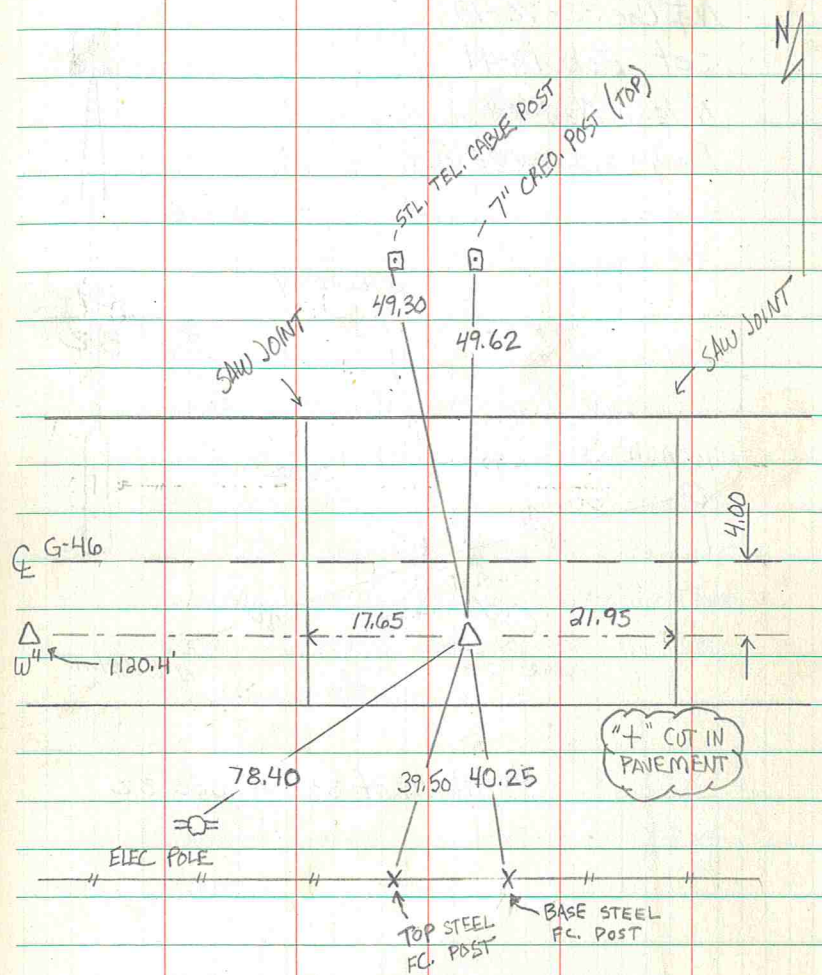 N
STL. TEL. CABLE POST
7" CREO. POST (TOP)
49.30
49.62
SAW JOINT
SAW JOINT
4.00
℄ G-46
17.65
21.95
1120.4'
"+" CUT IN
PAVEMENT
78.40
39.50
40.25
ELEC POLE
TOP STEEL
FC. POST
BASE STEEL
FC. POST